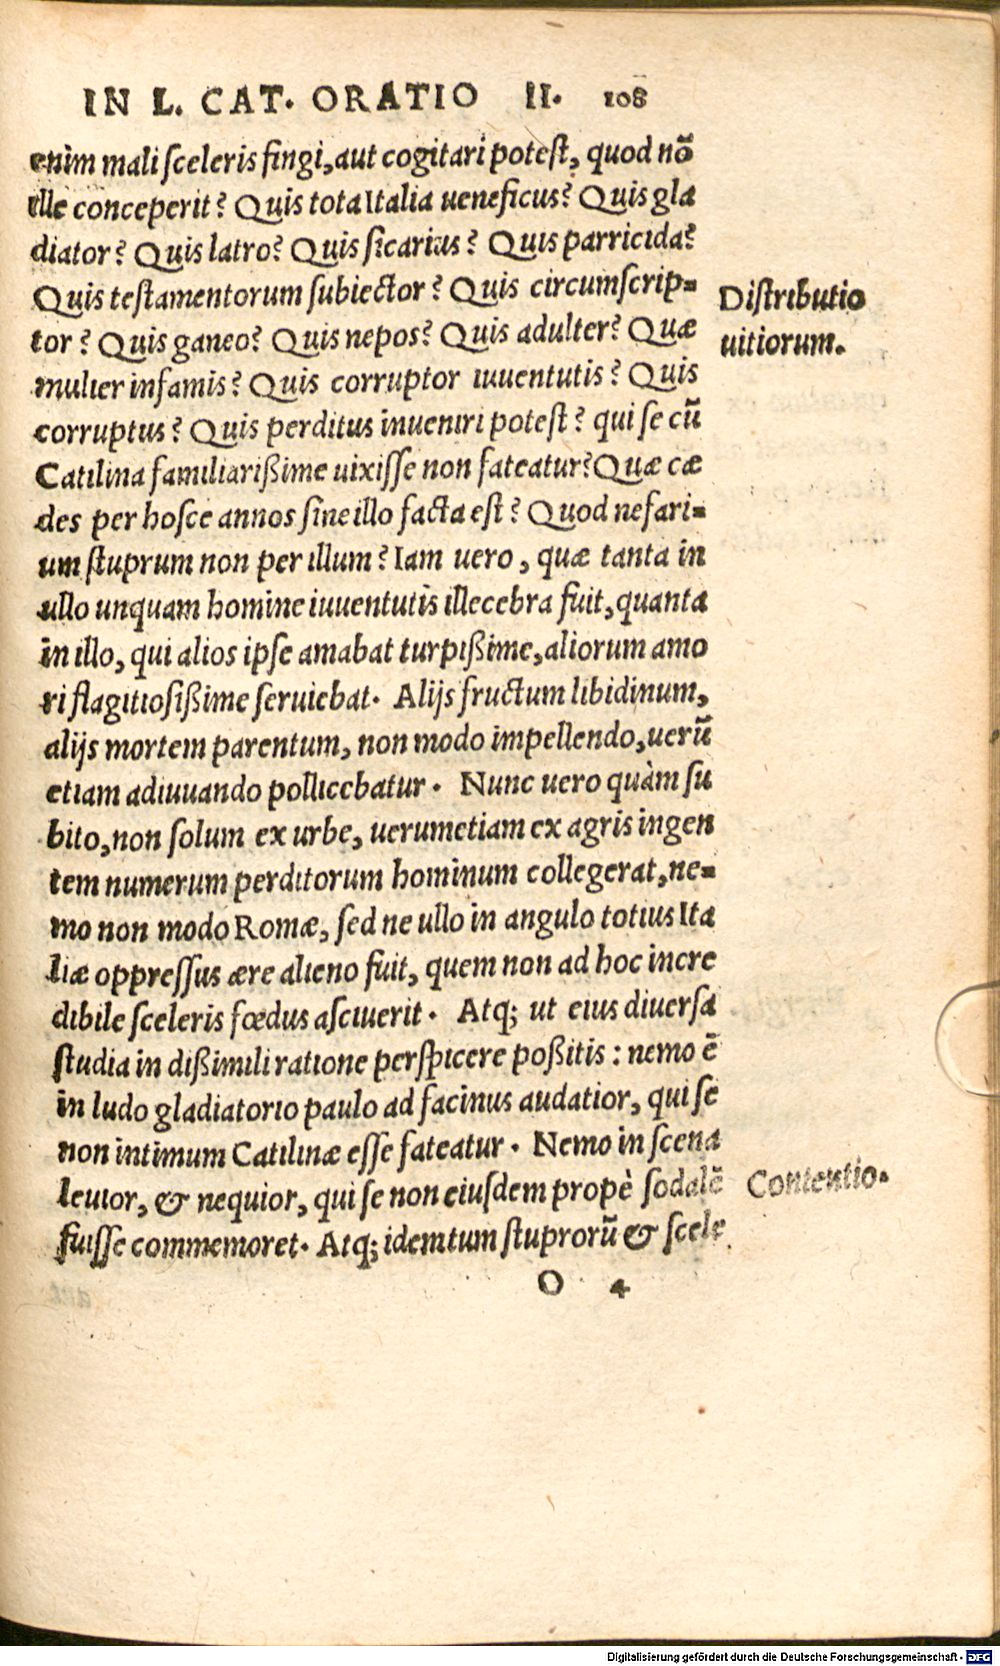 IN L. CAT. ORATIO II. 108
enim mali sceleris fingi, aut cogitari potest, quod nõ
ille conceperit? Quis tota Italia ueneficus? Quis gla
diator? Quis latro? Quis sicarius? Quis parricida?
Quis testamentorum subiector? Quis circumscrip-
tor? Quis ganeo? Quis nepos? Quis adulter? Quæ
mulier infamis? Quis corruptor iuuentutis? Quis
corruptus? Quis perditus inueniri potest? qui se cũ
Catilina familiarißime uixisse non fateatur? Quæ cæ
des per hosce annos sine illo facta est? Quod nefari-
um stuprum non per illum? Iam uero, quæ tanta in
ullo unquam homine iuuentutis illecebra fuit, quanta
in illo, qui alios ipse amabat turpißime, aliorum amo
ri flagitiosißime seruiebat. Alijs fructum libidinum,
alijs mortem parentum, non modo impellendo, uerũ
etiam adiuuando pollicebatur. Nunc uero quàm su
bito, non solum ex urbe, uerumetiam ex agris ingen
tem numerum perditorum hominum collegerat, ne-
mo non modo Romæ, sed ne ullo in angulo totius Ita
liæ oppressus ære alieno fuit, quem non ad hoc incre
dibile sceleris fœdus asciuerit. Atq; ut eius diuersa
studia in dißimili ratione perspicere poßitis: nemo ẽ
in ludo gladiatorio paulo ad facinus audatior, qui se
non intimum Catilinæ esse fateatur. Nemo in scena
leuior, & nequior, qui se non eiusdem propè sodalẽ
fuisse commemoret. Atq; idem tum stuprorũ & scele
O 4
Distributio
uitiorum.
Contentio.
Digitalisierung gefördert durch die Deutsche Forschungsgemeinschaft - DFG